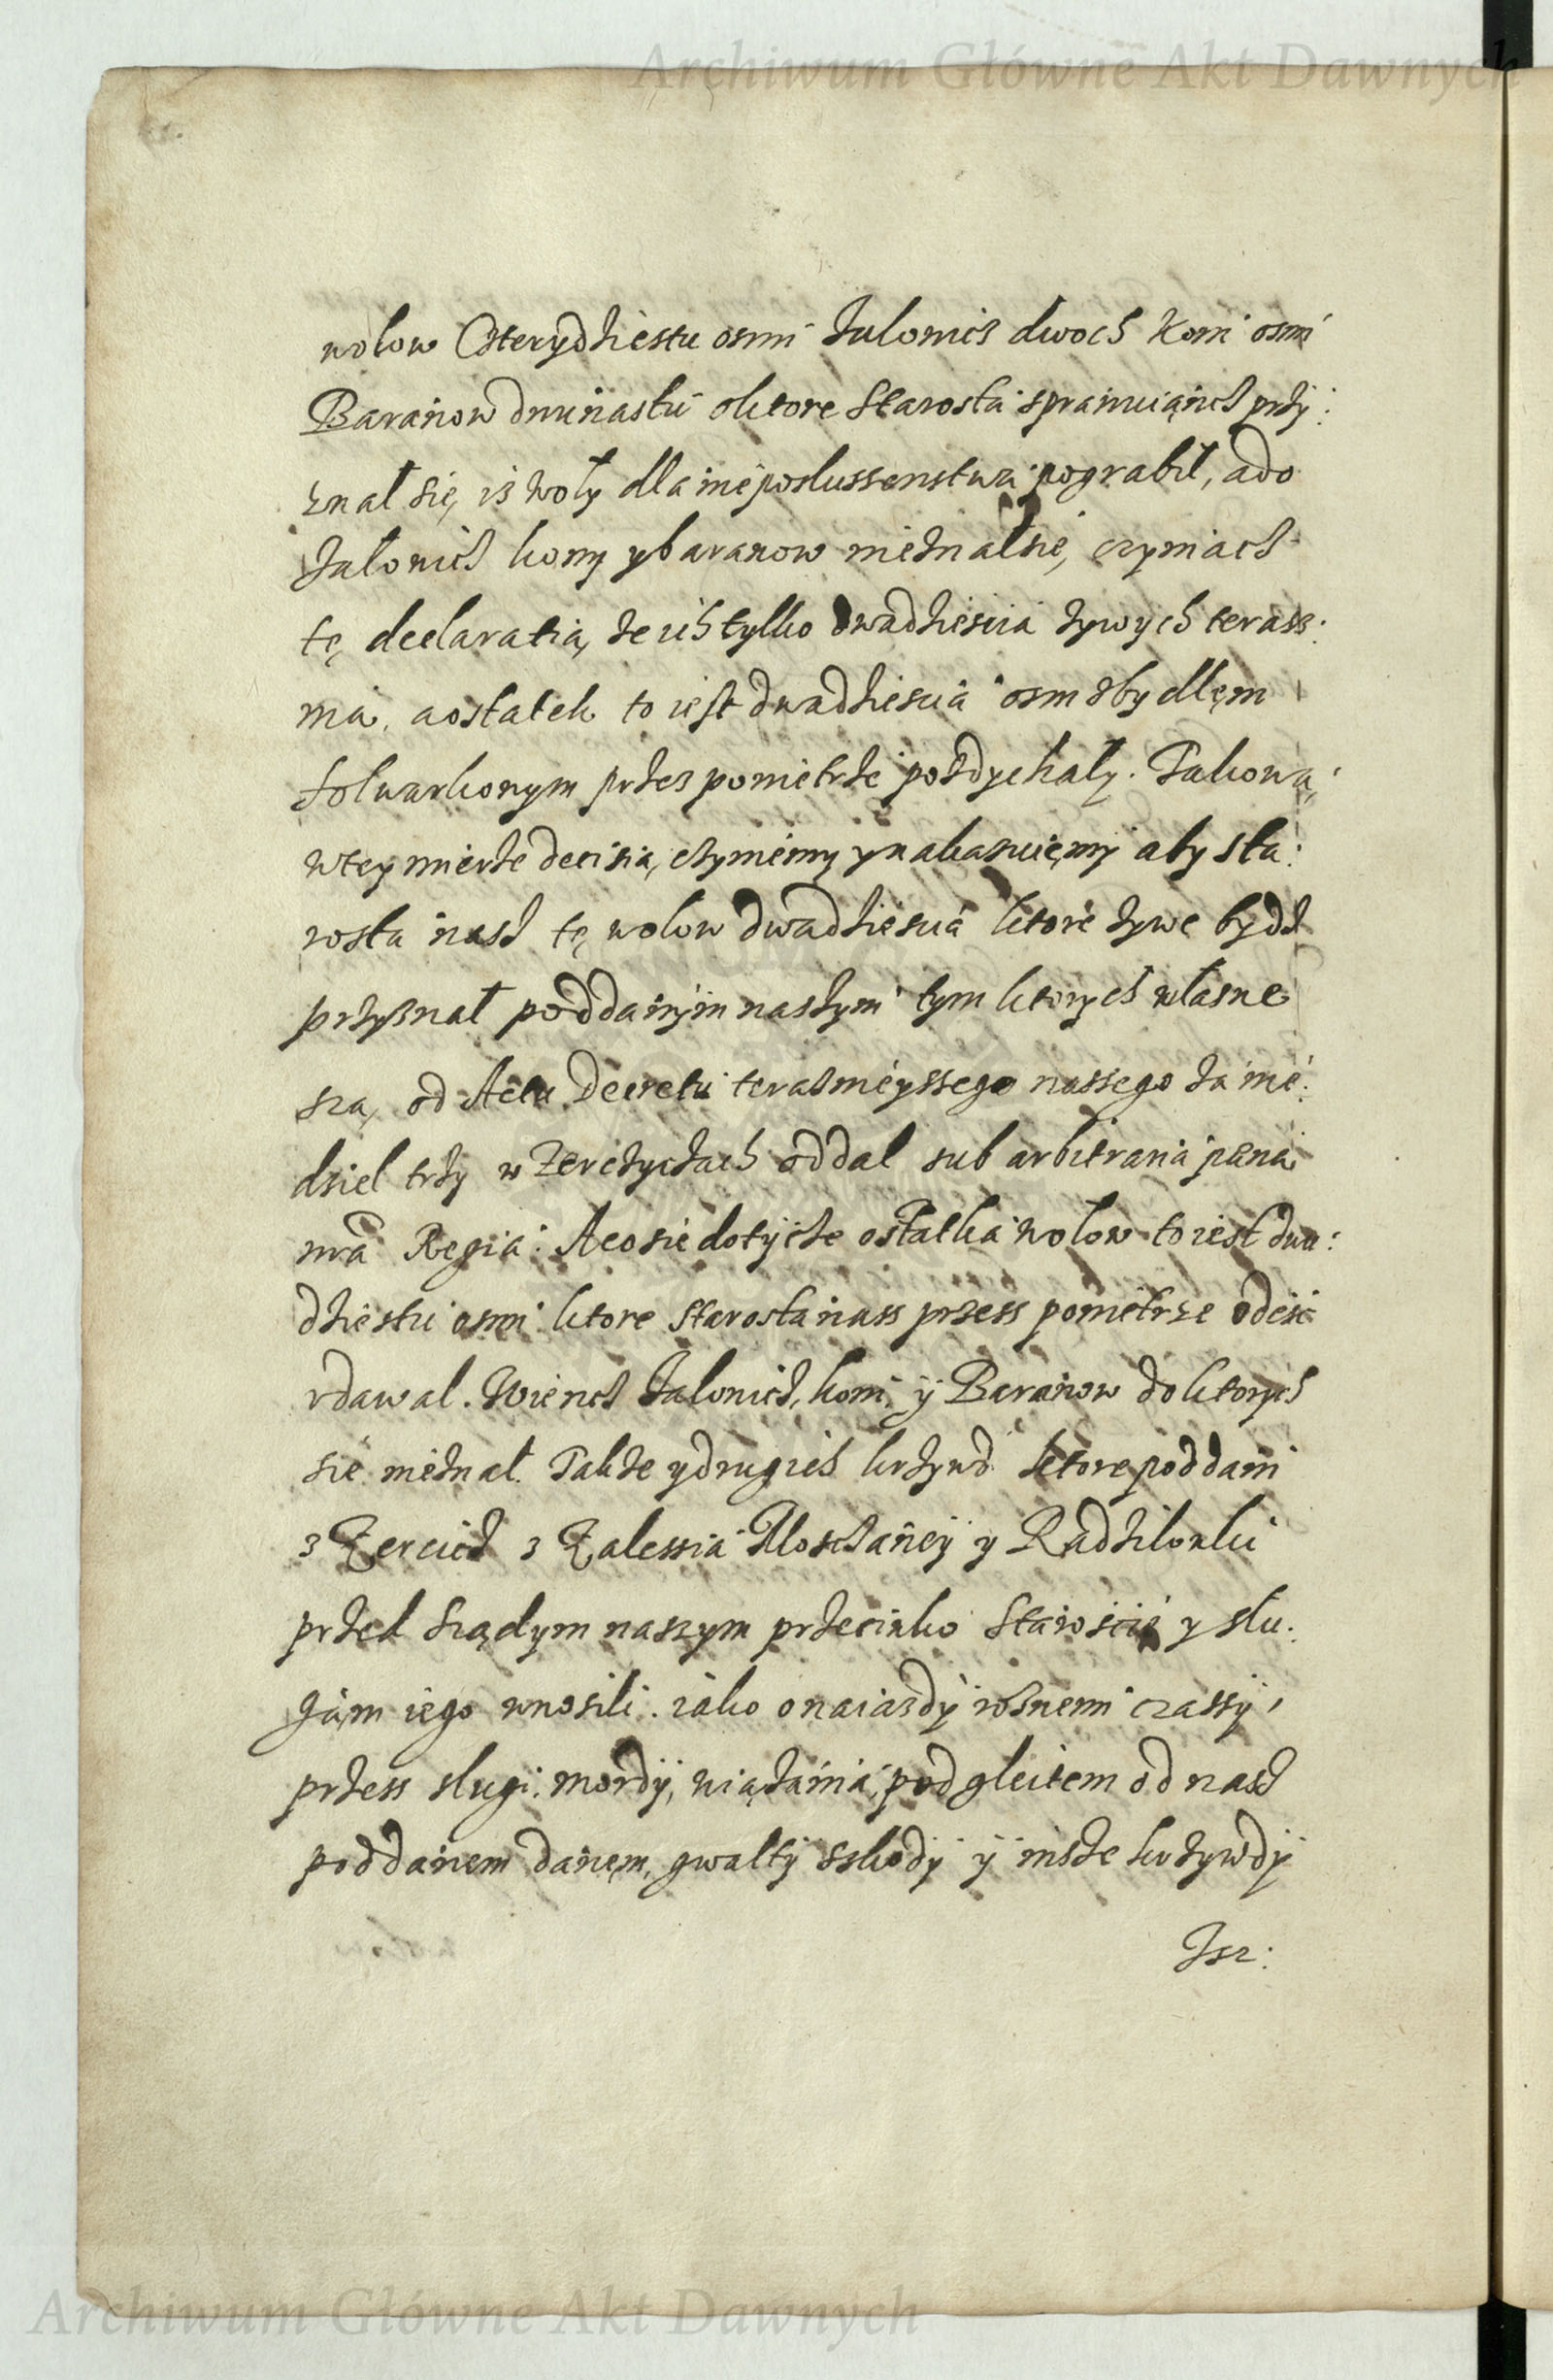 Archiwum Główne Akt Dawnych
wolow Czterydziestu osmi Jalowic dwoch Koni osmi
Baranow dwunastu oktore Starosta sprawuiąncz przy:
znał się, iż woły dla nieposlussenstwa pograbił, ado
Jalowicz kony ybaranow nieznałsie, czyniacz
tę declaratią, ze ich tylko dwadziescia zywych terasz:
ma. aostatek to iest dwadziescia osm zbydlęm
folwarkowym przez powietrze pozdychały. Takową
wtey mierze decisią, czyniemy ynakazuięmy aby sta:
rosta nasz tę wolow dwadziescia ktore zywe bydz
przyznał poddanym naszym tym ktorych własne
szą, od Actu Decretu teraznieyssego nassego za nie:
dziel trzy w Zerczyczach oddal sub arbitraria pæna
nrã Regia. Acosie dotycze ostatka wolow to iest dwu:
dziestu osmi ktore Starosta nass przess powietrze odeiść
vdawal. Wiencz Jalowicz, koni, ÿ Baranow do ktorych
sie nieznał. Takze ydrugich krzywd ktore poddani
z Zercicz z Zalessia Mosczaney y Radzilowki
przed Sządym naszym przeciwko Starościę y slu:
gam iego wnosili. iako onaiazdy roznemi czassÿ,
przess slugi. mordÿ, wiązania, pod gleitem od nasz
poddanem danęm, gwałtÿ szkodÿ ÿ insze krzywdÿ
Isz:
Archiwum Główne Akt Dawnych